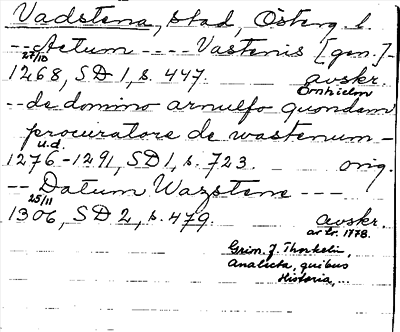 Vadstena, stad, Österg. l.
-- Actum ---- Vastenis [gen.] --
27/10
1268, SD 1, s. 447. avskr.
Örnhielm
-- de domino arnulfo quondam
procuratore de wastenum --
u.d.
1276-1291, SD 1, s. 723. orig.
-- Datum Wazstene ---
25/11
1306, SD 2, s. 479. avskr.
av år 1778.
Grim. J. Thorkelin,
Analecta, quibus
Historia, ...